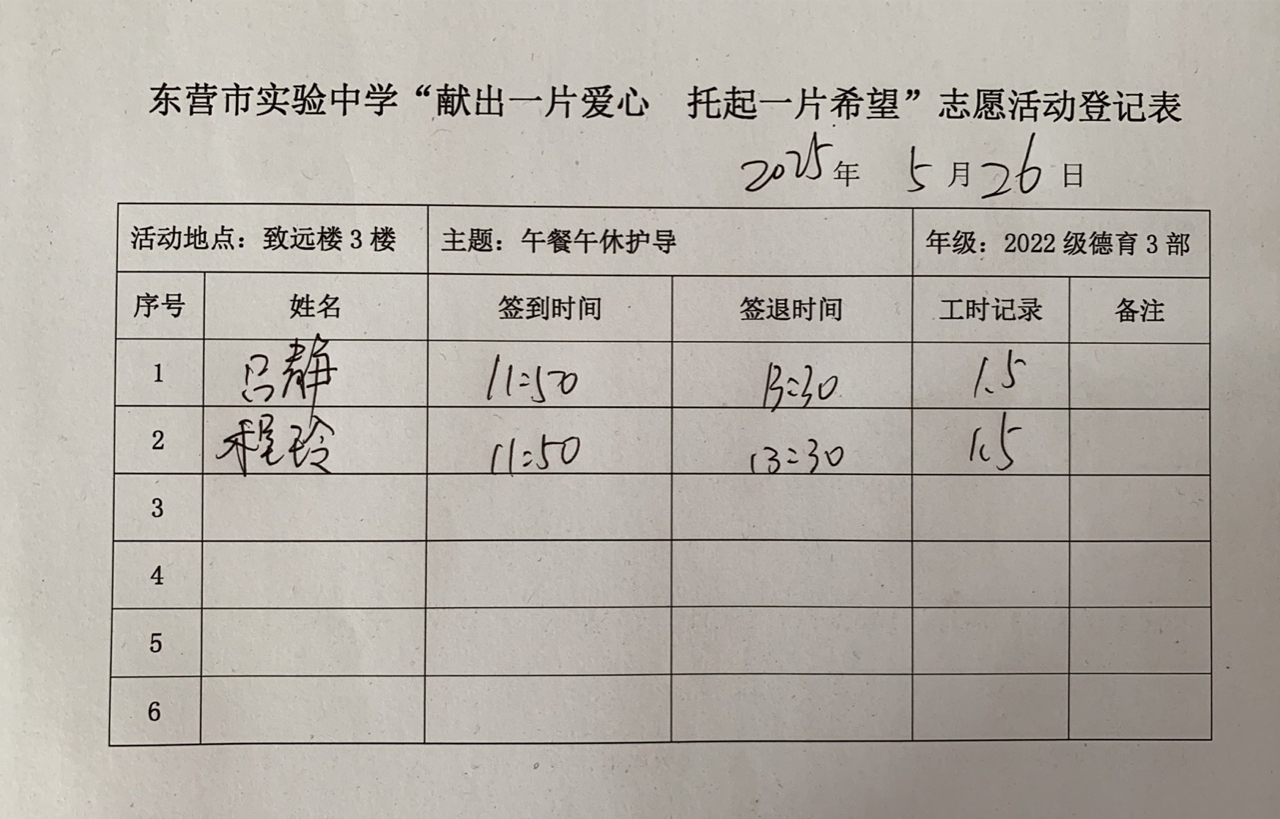 东营市实验中学“献出一片爱心　托起一片希望”志愿活动登记表
2025年 5月26日
活动地点：致远楼3楼 主题：午餐午休护导 年级：2022级德育3部
序号 姓名 签到时间 签退时间 工时记录 备注
1 吕静 11:50 13:30 1.5
2 程玲 11:50 13:30 1.5
3
4
5
6